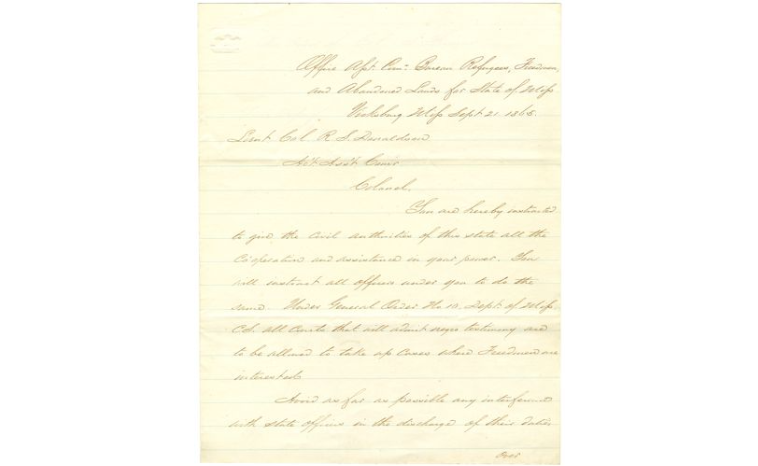 Office Asst. Com. Bureau Refugees, Freedmen,
and Abandoned Lands for State of Miss
Vicksburg Miss Sept 21 1865.
Lieut Col. R. S. Donaldson
Act Asst Comr
Colonel,
You are hereby instructed
to give the civil authorities of this state all the
Co operation and assistance in your power. You
will instruct all officers under you to do the
same. Under General Order No 10. Dept. of Miss
all Courts that will admit negro testimony are
to be allowed to take up cases where Freedmen are
interested.
Avoid as far as possible any interference
with state officers in the discharge of their duties
Over